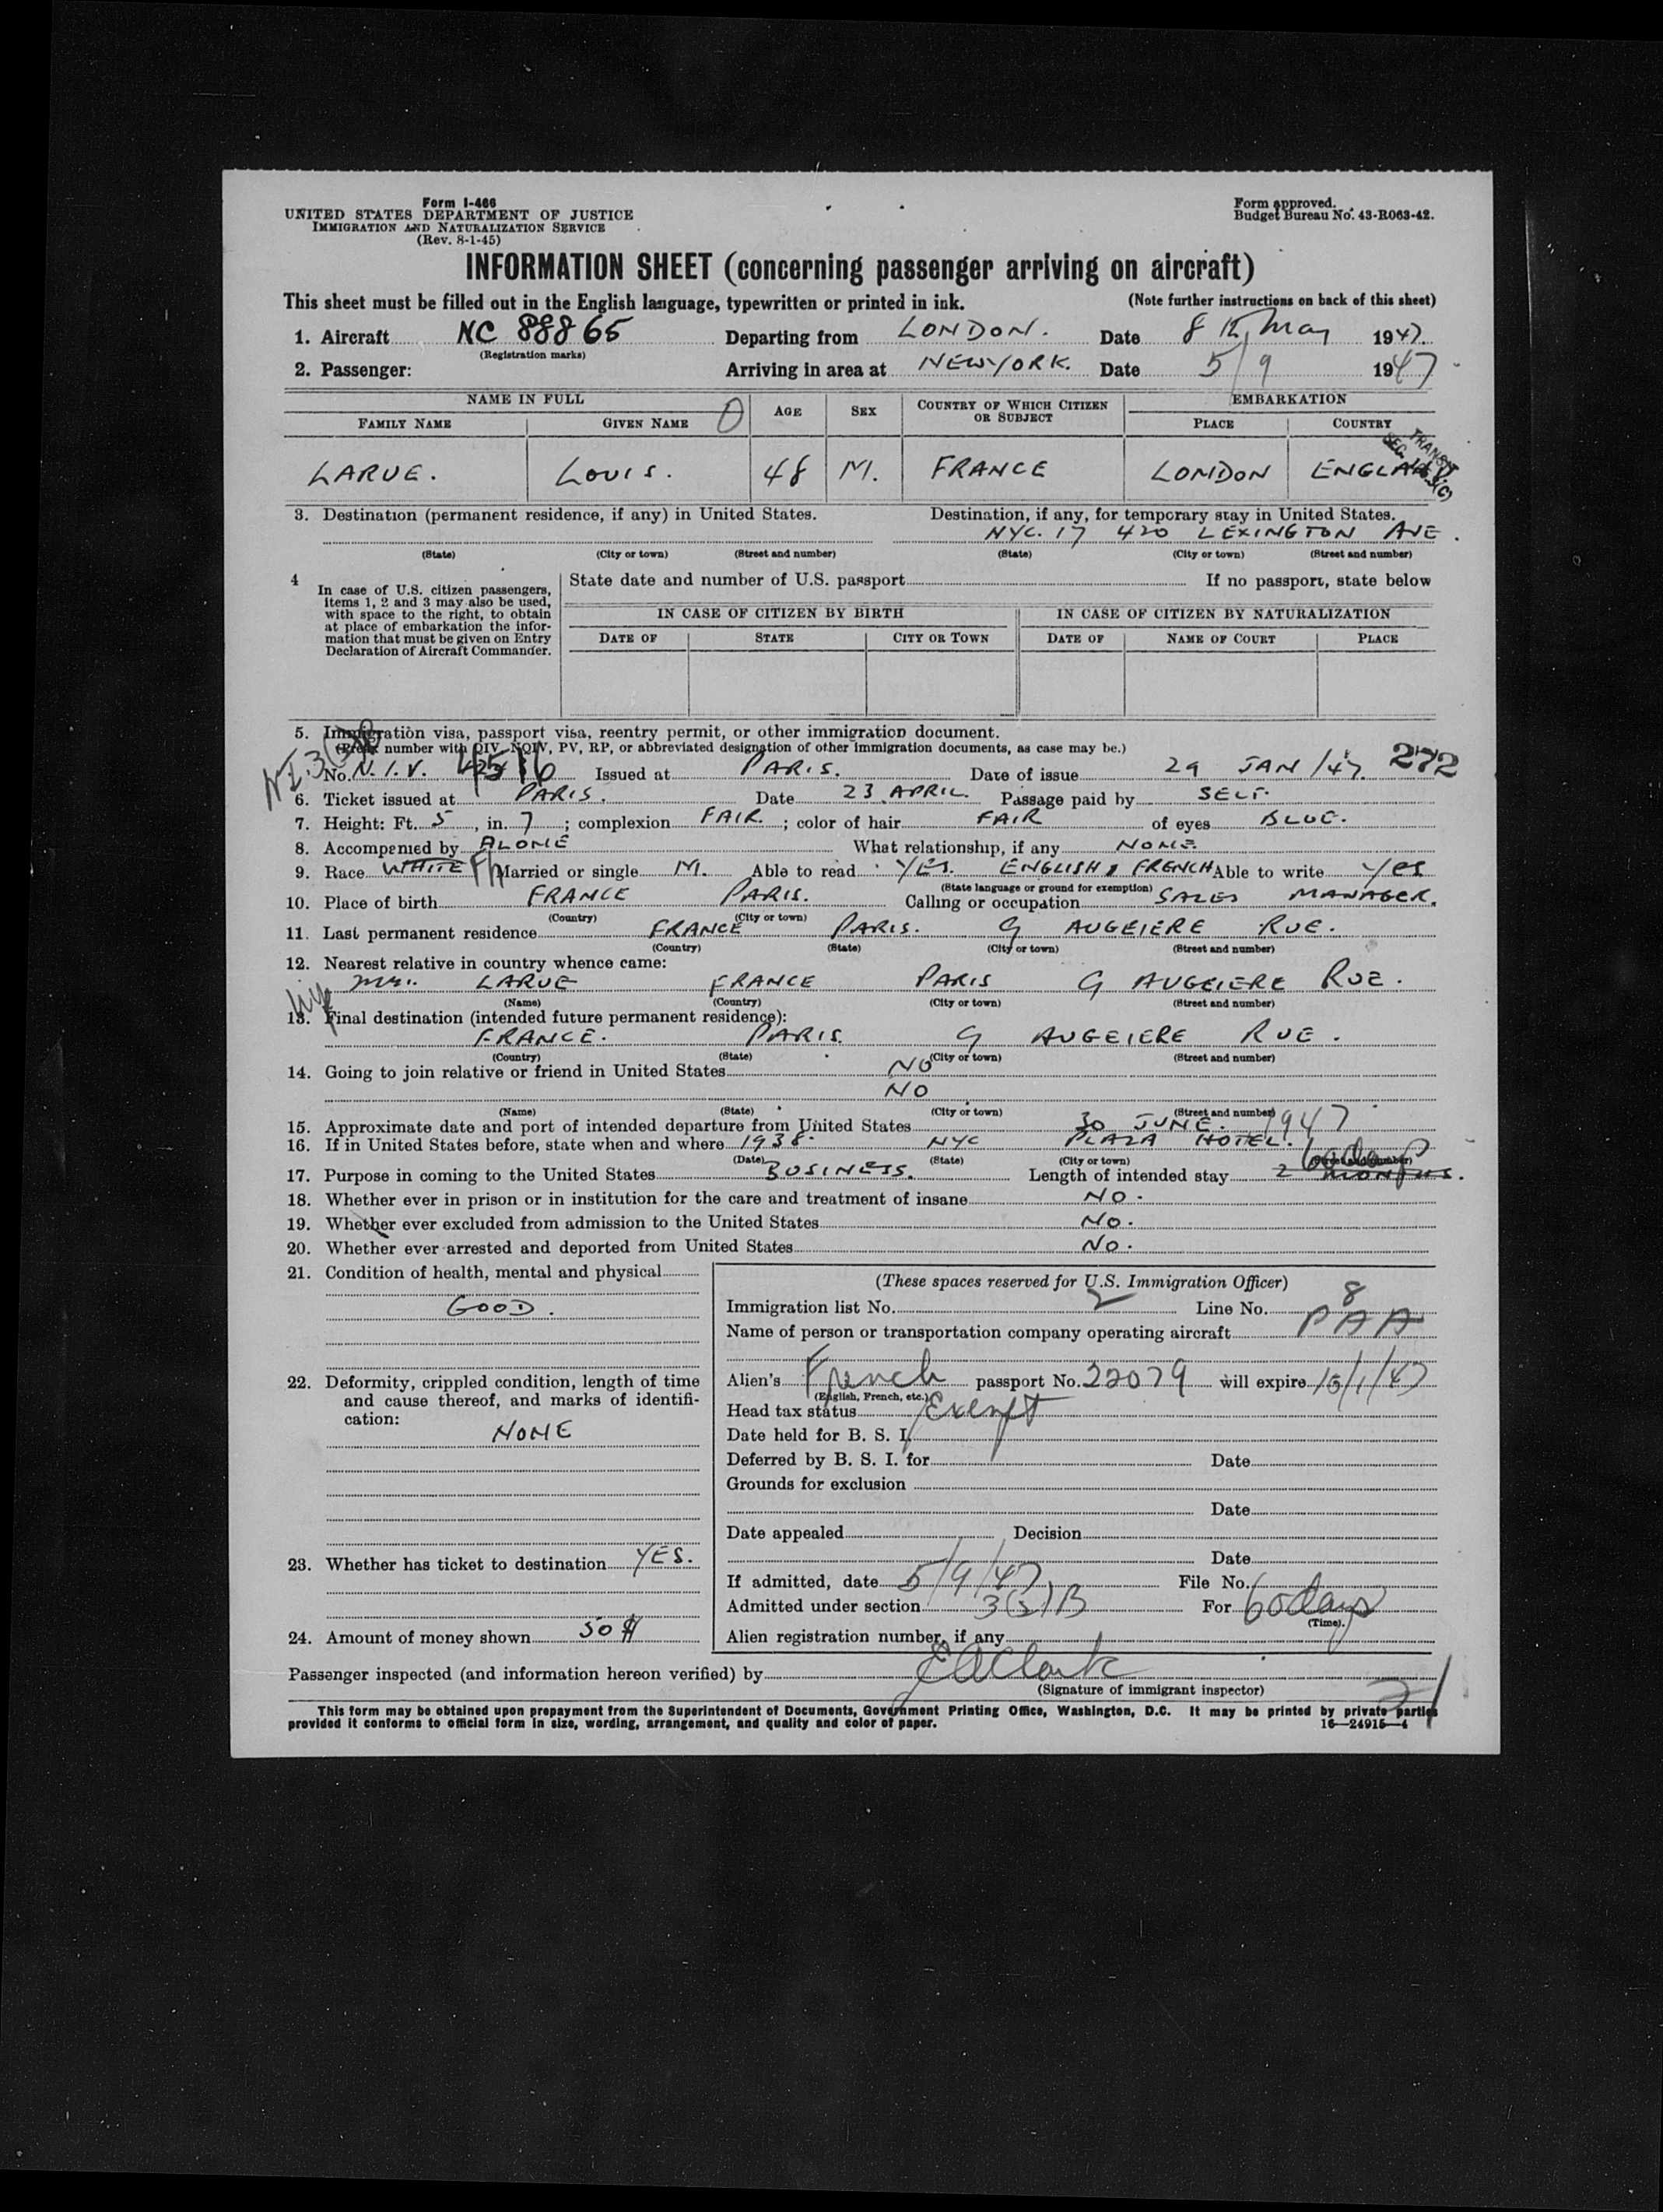 Form I-466
UNITED STATES DEPARTMENT OF JUSTICE
IMMIGRATION AND NATURALIZATION SERVICE
(Rev. 8-1-45)
Form approved.
Budget Bureau No. 43-R063-42.
INFORMATION SHEET (concerning passenger arriving on aircraft)
This sheet must be filled out in the English language, typewritten or printed in ink. (Note further instructions on back of this sheet)
1. Aircraft NC 88865 Departing from LONDON. Date 8 May 1947.
(Registration marks)
2. Passenger: Arriving in area at NEWYORK. Date 5/9 1947
NAME IN FULL AGE SEX COUNTRY OF WHICH CITIZEN OR SUBJECT EMBARKATION
FAMILY NAME GIVEN NAME PLACE COUNTRY
TRANSIT
LARUE. LOUIS. 48 M. FRANCE LONDON ENGLAND
3. Destination (permanent residence, if any) in United States. Destination, if any, for temporary stay in United States.
NYC. 17 420 LEXINGTON AVE.
(State) (City or town) (Street and number) (State) (City or town) (Street and number)
4 In case of U.S. citizen passengers, items 1, 2 and 3 may also be used, with space to the right, to obtain at place of embarkation the information that must be given on Entry Declaration of Aircraft Commander.
State date and number of U.S. passport If no passport, state below
IN CASE OF CITIZEN BY BIRTH IN CASE OF CITIZEN BY NATURALIZATION
DATE OF STATE CITY OR TOWN DATE OF NAME OF COURT PLACE
5. Immigration visa, passport visa, reentry permit, or other immigration document.
(Prefix number with QIV, NQIV, PV, RP, or abbreviated designation of other immigration documents, as case may be.)
No. N.I.V. 4516 Issued at PARIS. Date of issue 29 JAN/47. 272
6. Ticket issued at PARIS. Date 23 APRIL. Passage paid by SELF.
7. Height: Ft. 5, in. 7; complexion FAIR.; color of hair FAIR of eyes BLUE.
8. Accompenied by ALONE What relationship, if any NONE.
9. Race WHITE Fh Married or single M. Able to read YES. ENGLISH, FRENCH Able to write Yes
(State language or ground for exemption)
10. Place of birth FRANCE PARIS. Calling or occupation SALES MANAGER.
(Country) (City or town)
11. Last permanent residence FRANCE PARIS. 9 AUGEIERE RUE.
(Country) (State) (City or town) (Street and number)
12. Nearest relative in country whence came:
Mrs. LARUE FRANCE PARIS 9 AUGEIERE RUE.
(Name) (Country) (City or town) (Street and number)
13. Final destination (intended future permanent residence):
FRANCE. PARIS. 9 AUGEIERE RUE.
(Country) (State) (City or town) (Street and number)
14. Going to join relative or friend in United States NO
NO
(Name) (State) (City or town) (Street and number)
15. Approximate date and port of intended departure from United States 30 JUNE. 1947
16. If in United States before, state when and where 1938. NYC PLAZA HOTEL.
(Date) (State) (City or town) (Street and number)
17. Purpose in coming to the United States BUSINESS. Length of intended stay 2 MONTHS. 60 days
18. Whether ever in prison or in institution for the care and treatment of insane NO.
19. Whether ever excluded from admission to the United States NO.
20. Whether ever arrested and deported from United States NO.
21. Condition of health, mental and physical
GOOD.
22. Deformity, crippled condition, length of time and cause thereof, and marks of identification:
NONE
23. Whether has ticket to destination YES.
24. Amount of money shown 50 $
(These spaces reserved for U.S. Immigration Officer)
Immigration list No. 2 Line No. 8
Name of person or transportation company operating aircraft PAA
Alien's French passport No. 22079 will expire
(English, French, etc.)
Head tax status Exempt
Date held for B. S. I.
Deferred by B. S. I. for Date
Grounds for exclusion
Date
Date appealed Decision
Date
If admitted, date 5/9/47 File No.
Admitted under section 3(2)B For 60 days
(Time).
Alien registration number, if any
Passenger inspected (and information hereon verified) by E A Clark
(Signature of immigrant inspector)
This form may be obtained upon prepayment from the Superintendent of Documents, Government Printing Office, Washington, D.C. It may be printed by private parties
provided it conforms to official form in size, wording, arrangement, and quality and color of paper. 16—24915-4